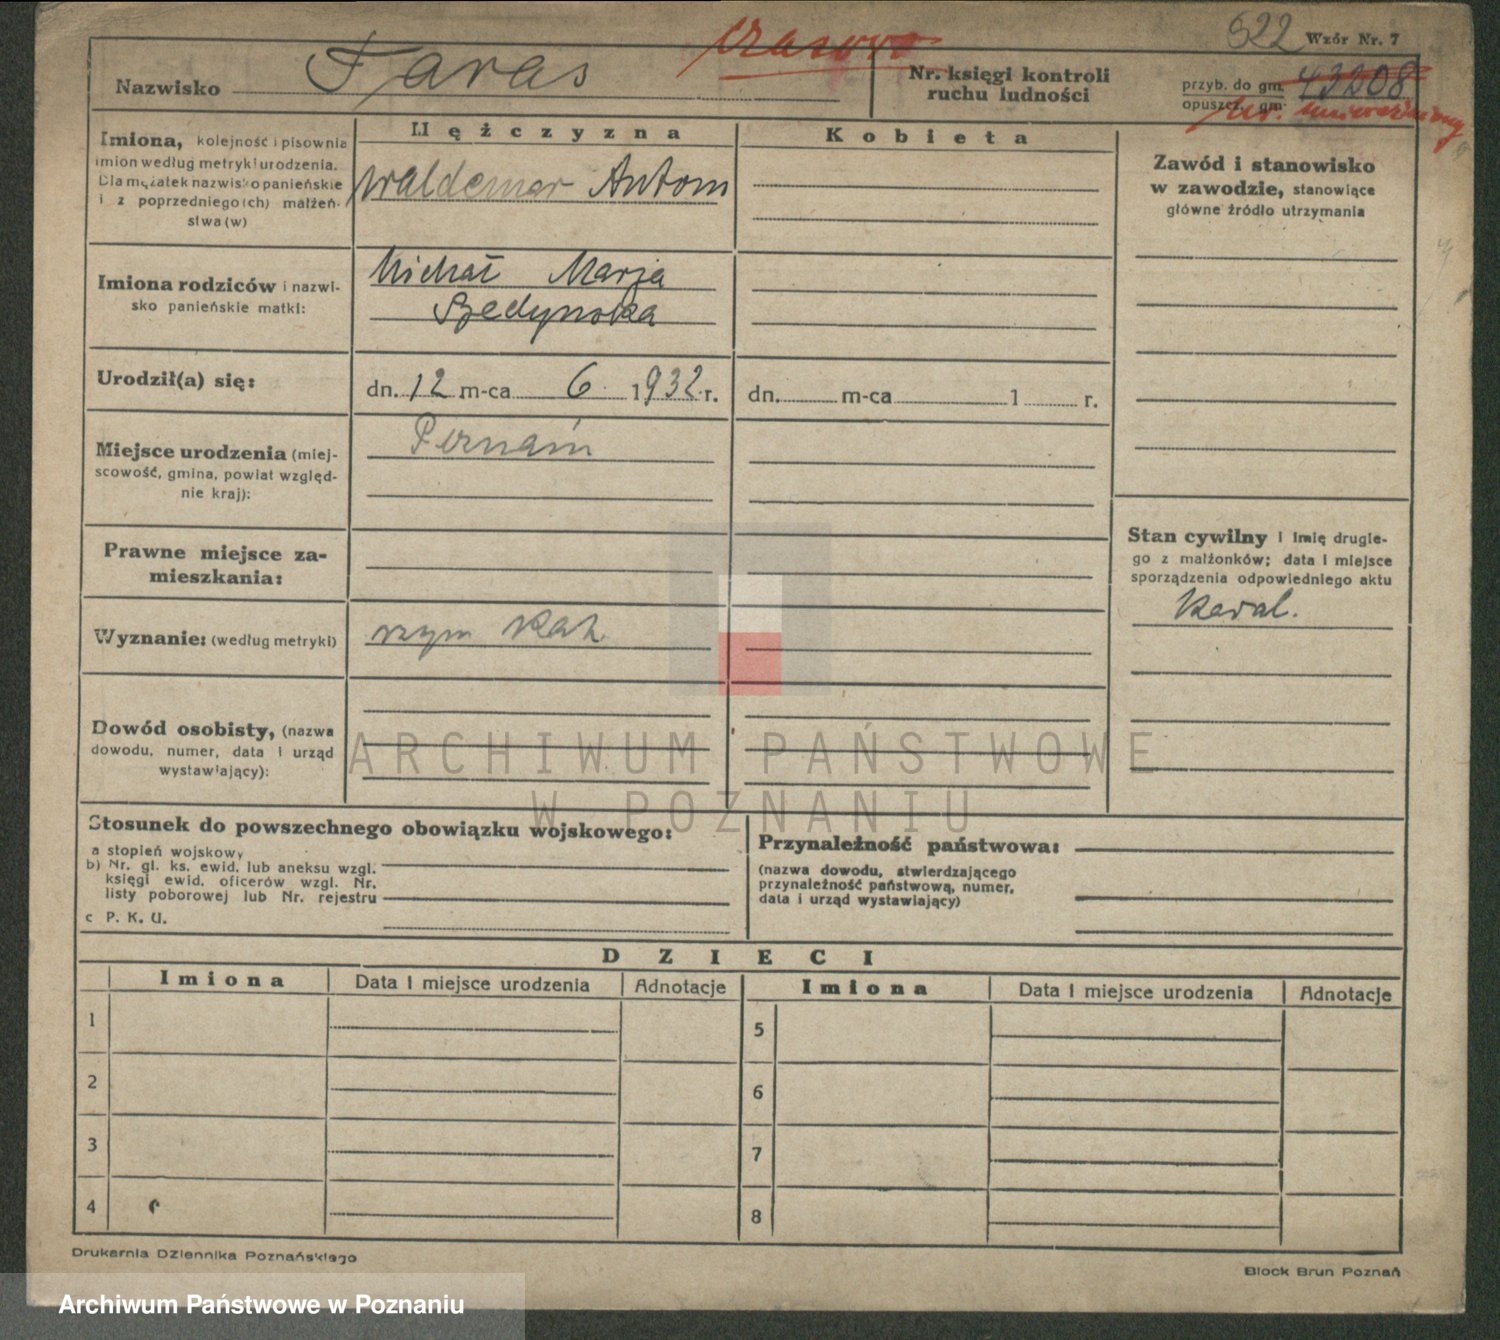 czasowo
522 Wzór Nr. 7
Nazwisko Taras
Nr. księgi kontroli
ruchu ludności
przyb. do gm. 43208
opuszcz. gm.
nr. unieważniony
Imiona, kolejność i pisownia
imion według metryki urodzenia.
Dla mężatek nazwisko panieńskie
i z poprzedniego(ch) małżeń-
stwa(w)
Mężczyzna
Kobieta
Waldemar Antoni
Zawód i stanowisko
w zawodzie, stanowiące
główne źródło utrzymania
Imiona rodziców i nazwi-
sko panieńskie matki:
Michał Marja
Urodził(a) się:
dn. 12 m-ca 6. 1932 r.
dn. m-ca 1 r.
Miejsce urodzenia (miej-
scowość, gmina, powiat względ-
nie kraj):
Prawne miejsce za-
mieszkania:
Stan cywilny i imię drugie-
go z małżonków; data i miejsce
sporządzenia odpowiedniego aktu
Kawal.
Wyznanie: (według metryki)
rzym kat.
Dowód osobisty, (nazwa
dowodu, numer, data i urząd
wystawiający):
ARCHIWUM PAŃSTWOWE
W POZNANIU
Stosunek do powszechnego obowiązku wojskowego:
a stopień wojskowy
b) Nr. gl. ks. ewid. lub aneksu wzgl.
księgi ewid. oficerów wzgl. Nr.
listy poborowej lub Nr. rejestru
c P. K. U.
Przynależność państwowa:
(nazwa dowodu, stwierdzającego
przynależność państwową, numer,
data i urząd wystawiający)
DZIECI
Imiona Data i miejsce urodzenia Adnotacje Imiona Data i miejsce urodzenia Adnotacje
1 5
2 6
3 7
4 8
Drukarnia Dziennika Poznańskiego
Block Brun Poznań
Archiwum Państwowe w Poznaniu